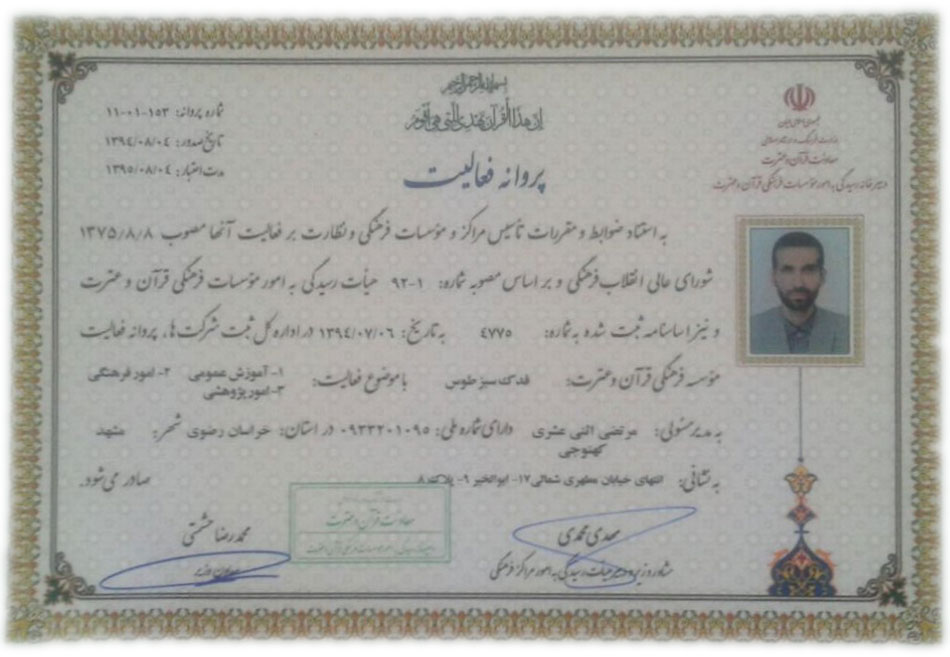 بسم الله الرحمن الرحیم
إن هذا القرآن یهدی للتی هی أقوم
جمهوری اسلامی ایران
وزارت فرهنگ و ارشاد اسلامی
معاونت قرآن و عترت
دبیرخانه رسیدگی به امور مؤسسات فرهنگی قرآن و عترت
شماره پروانه: ۱۵۳-۰۱-۱۱
تاریخ صدور: ۱۳۹٤/۰۸/۰٤
مدت اعتبار: ۱۳۹۵/۰۸/۰٤
پروانه فعالیت
به استناد ضوابط و مقررات تأسیس مراکز و مؤسسات فرهنگی و نظارت بر فعالیت آنها مصوب ۱۳۷۵/۸/۸
شورای عالی انقلاب فرهنگی و بر اساس مصوبه شماره: ۱-۹۲ هیأت رسیدگی به امور مؤسسات فرهنگی قرآن و عترت
و نیز اساسنامه ثبت شده به شماره: ٤۷۷۵ به تاریخ: ۱۳۹٤/۰۷/۰۶ در اداره کل ثبت شرکت ها، پروانه فعالیت
مؤسسه فرهنگی قرآن و عترت: فدک سبز طوس با موضوع فعالیت: ۱- آموزش عمومی ۲- امور فرهنگی
۳- امور پژوهشی
به مدیر مسئولی: مرتضی اثنی عشری دارای شماره ملی: ۰۹۳۳۲۰۱۰۹۵ در استان: خراسان رضوی شهر: مشهد
کهنوجی
به نشانی: انتهای خیابان مطهری شمالی ۱۷- ابوالخیر ۹- پلاک ۸ صادر می شود.
معاونت قرآن و عترت
مهدی محمدی
مشاور وزیر و دبیر هیأت رسیدگی به امور مراکز فرهنگی
محمدرضا حشمتی
معاون وزیر